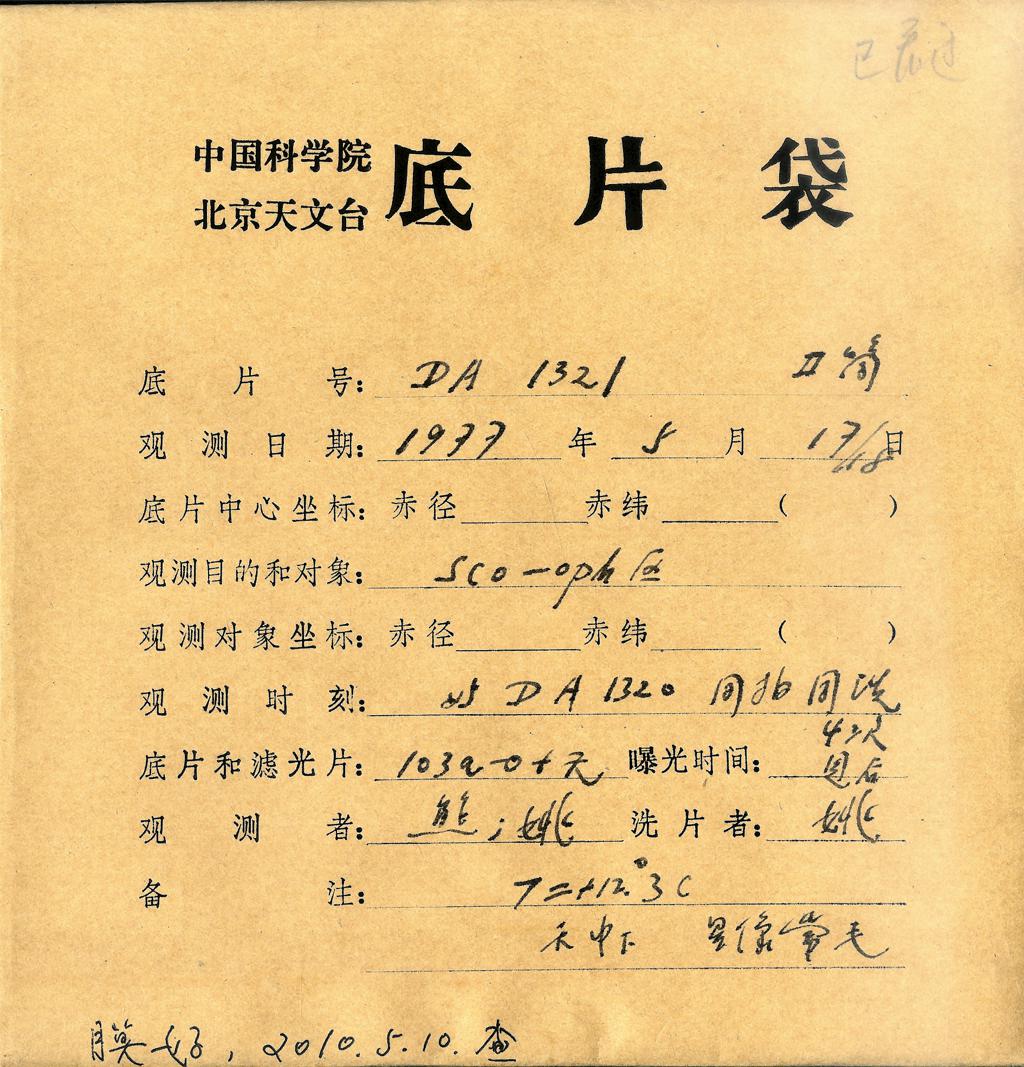 已
中国科学院
北京天文台 底片袋
底片号: DA 1321 II 筒
观测日期: 1977 年 5 月 17/18 日
底片中心坐标: 赤径 赤纬 ( )
观测目的和对象: Sco-oph 区
观测对象坐标: 赤径 赤纬 ( )
观测时刻: 与 DA 1320 同拍同洗
底片和滤光片: 103a-0+无 曝光时间: 4次
观测者: 熊;姚 洗片者: 姚
备注: T=+12.°3C
天中下 星像带毛
膜好, 2010.5.10.查